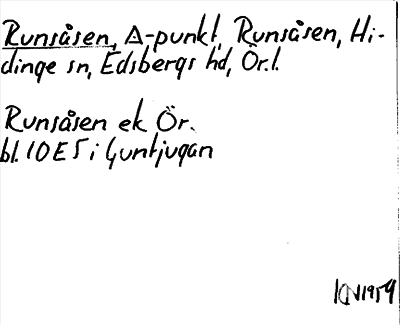 Runsåsen, Δ-punkt, Runsåsen, Hi-
dinge sn, Edsbergs hd, Ör.l.
Runsåsen ek Ör.
bl. 10 E 5 i Ljuntjugan
KV 1959